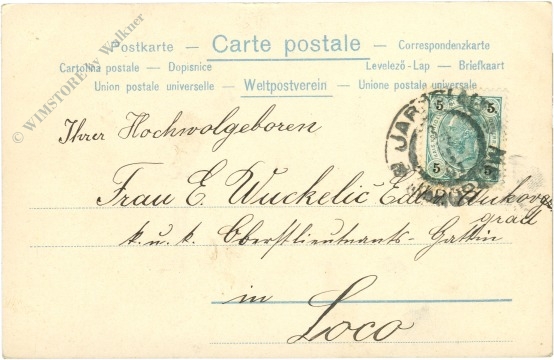 Postkarte — Carte postale — Correspondenzkarte
Cartolina postale — Dopisnice Levelező - Lap — Briefkaart
Union postale universelle — Weltpostverein — Unione postale universale
© WIMSTORE by Walkner
5 5
5 5
JAROSLAU
Ihrer Hochwolgeboren
Frau E. Wuckelic Edle
grad
k. u. k. Oberstlieutnants-Gattin
in
Loco